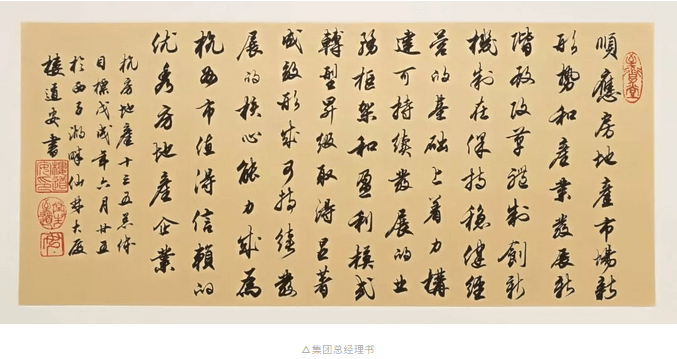 順應房地產市場新
形勢和產業發展新
階段改革體制創新
機制在保持穩健經
营的基础上着力構
建可持續發展的业
務框架和盈利模式
轉型昇級取得显著
成效形成可持续發
展的核心能力成為
杭州市值得信賴的
优秀房地產企業
杭房地產十三五总体
目標戊戌年六月廿五
於西子湖畔仙林大廈
楼道安書
△集团总经理书